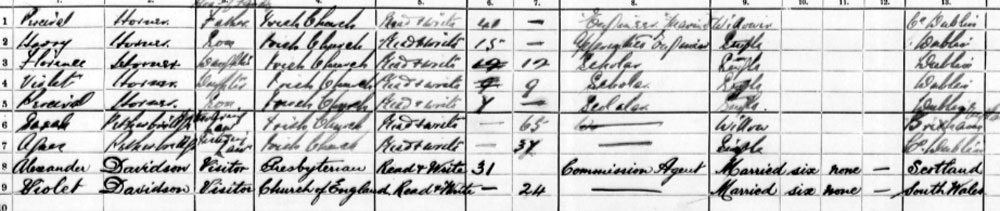 1 Percival Horner Father Irish Church Read & write 40 — Engineer Marine Widower Co Dublin
2 Harry Horner Son Irish Church Read & write 15 — Apprentice Engineer Single Dublin
3 Florence Horner Daughter Irish Church Read & write 12 12 Scholar Single Dublin
4 Violet Horner Daughter Irish Church Read & write 9 9 Scholar Single Dublin
5 Percival Horner Son Irish Church Read & write — Scholar Single
6 Sarah Irish Church Read & write — 65 Widow
7 Irish Church Read & write — Single Co Dublin
8 Alexander Davidson Visitor Presbyterian Read & Write 31 Commission Agent Married six none — Scotland
9 Violet Davidson Visitor Church of England Read & Write — 24 — Married six none — South Wales
10